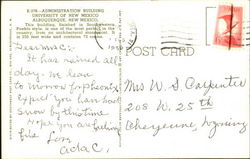 E-5374 - ADMINISTRATION BUILDING
UNIVERSITY OF NEW MEXICO
ALBUQUERQUE, NEW MEXICO.
This building, finished in Southwestern
Pueblo style, is one of the most perfect in the
country, from an architectural standpoint. It
is 200 feet wide and contains 72 rooms.
POST CARD
Dear Mrs C.;
It has rained all
day. We leave
to morrow for Phoenix
Expect you han hoot
snow by this time
Hope you are feeling
fine Love
Ada C.
Mrs W. S. Carpenter
208 W. 25th
Cheyenne, Wyoming